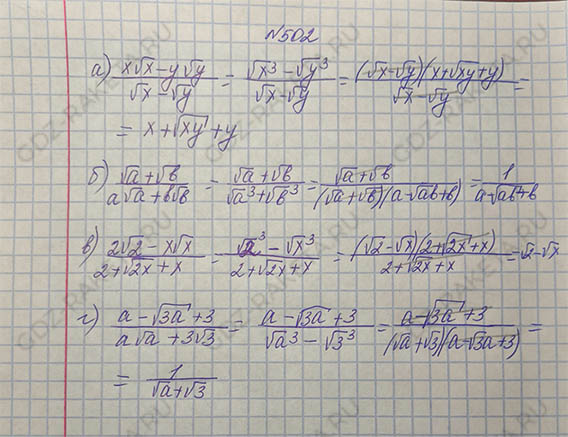 №502
а) x√x - y√y / √x - √y = √x³ - √y³ / √x - √y = (√x - √y)(x + √xy + y) / √x - √y =
= x + √xy + y
б) √a + √b / a√a + b√b = √a + √b / √a³ + √b³ = √a + √b / (√a + √b)(a - √ab + b) = 1 / a - √ab + b
в) 2√2 - x√x / 2 + √2x + x = √2³ - √x³ / 2 + √2x + x = (√2 - √x)(2 + √2x + x) / 2 + √2x + x = √2 - √x
г) a - √3a + 3 / a√a + 3√3 = a - √3a + 3 / √a³ - √3³ = a - √3a + 3 / (√a + √3)(a - √3a + 3) =
= 1 / √a + √3
GDZ-RAKETA.RU